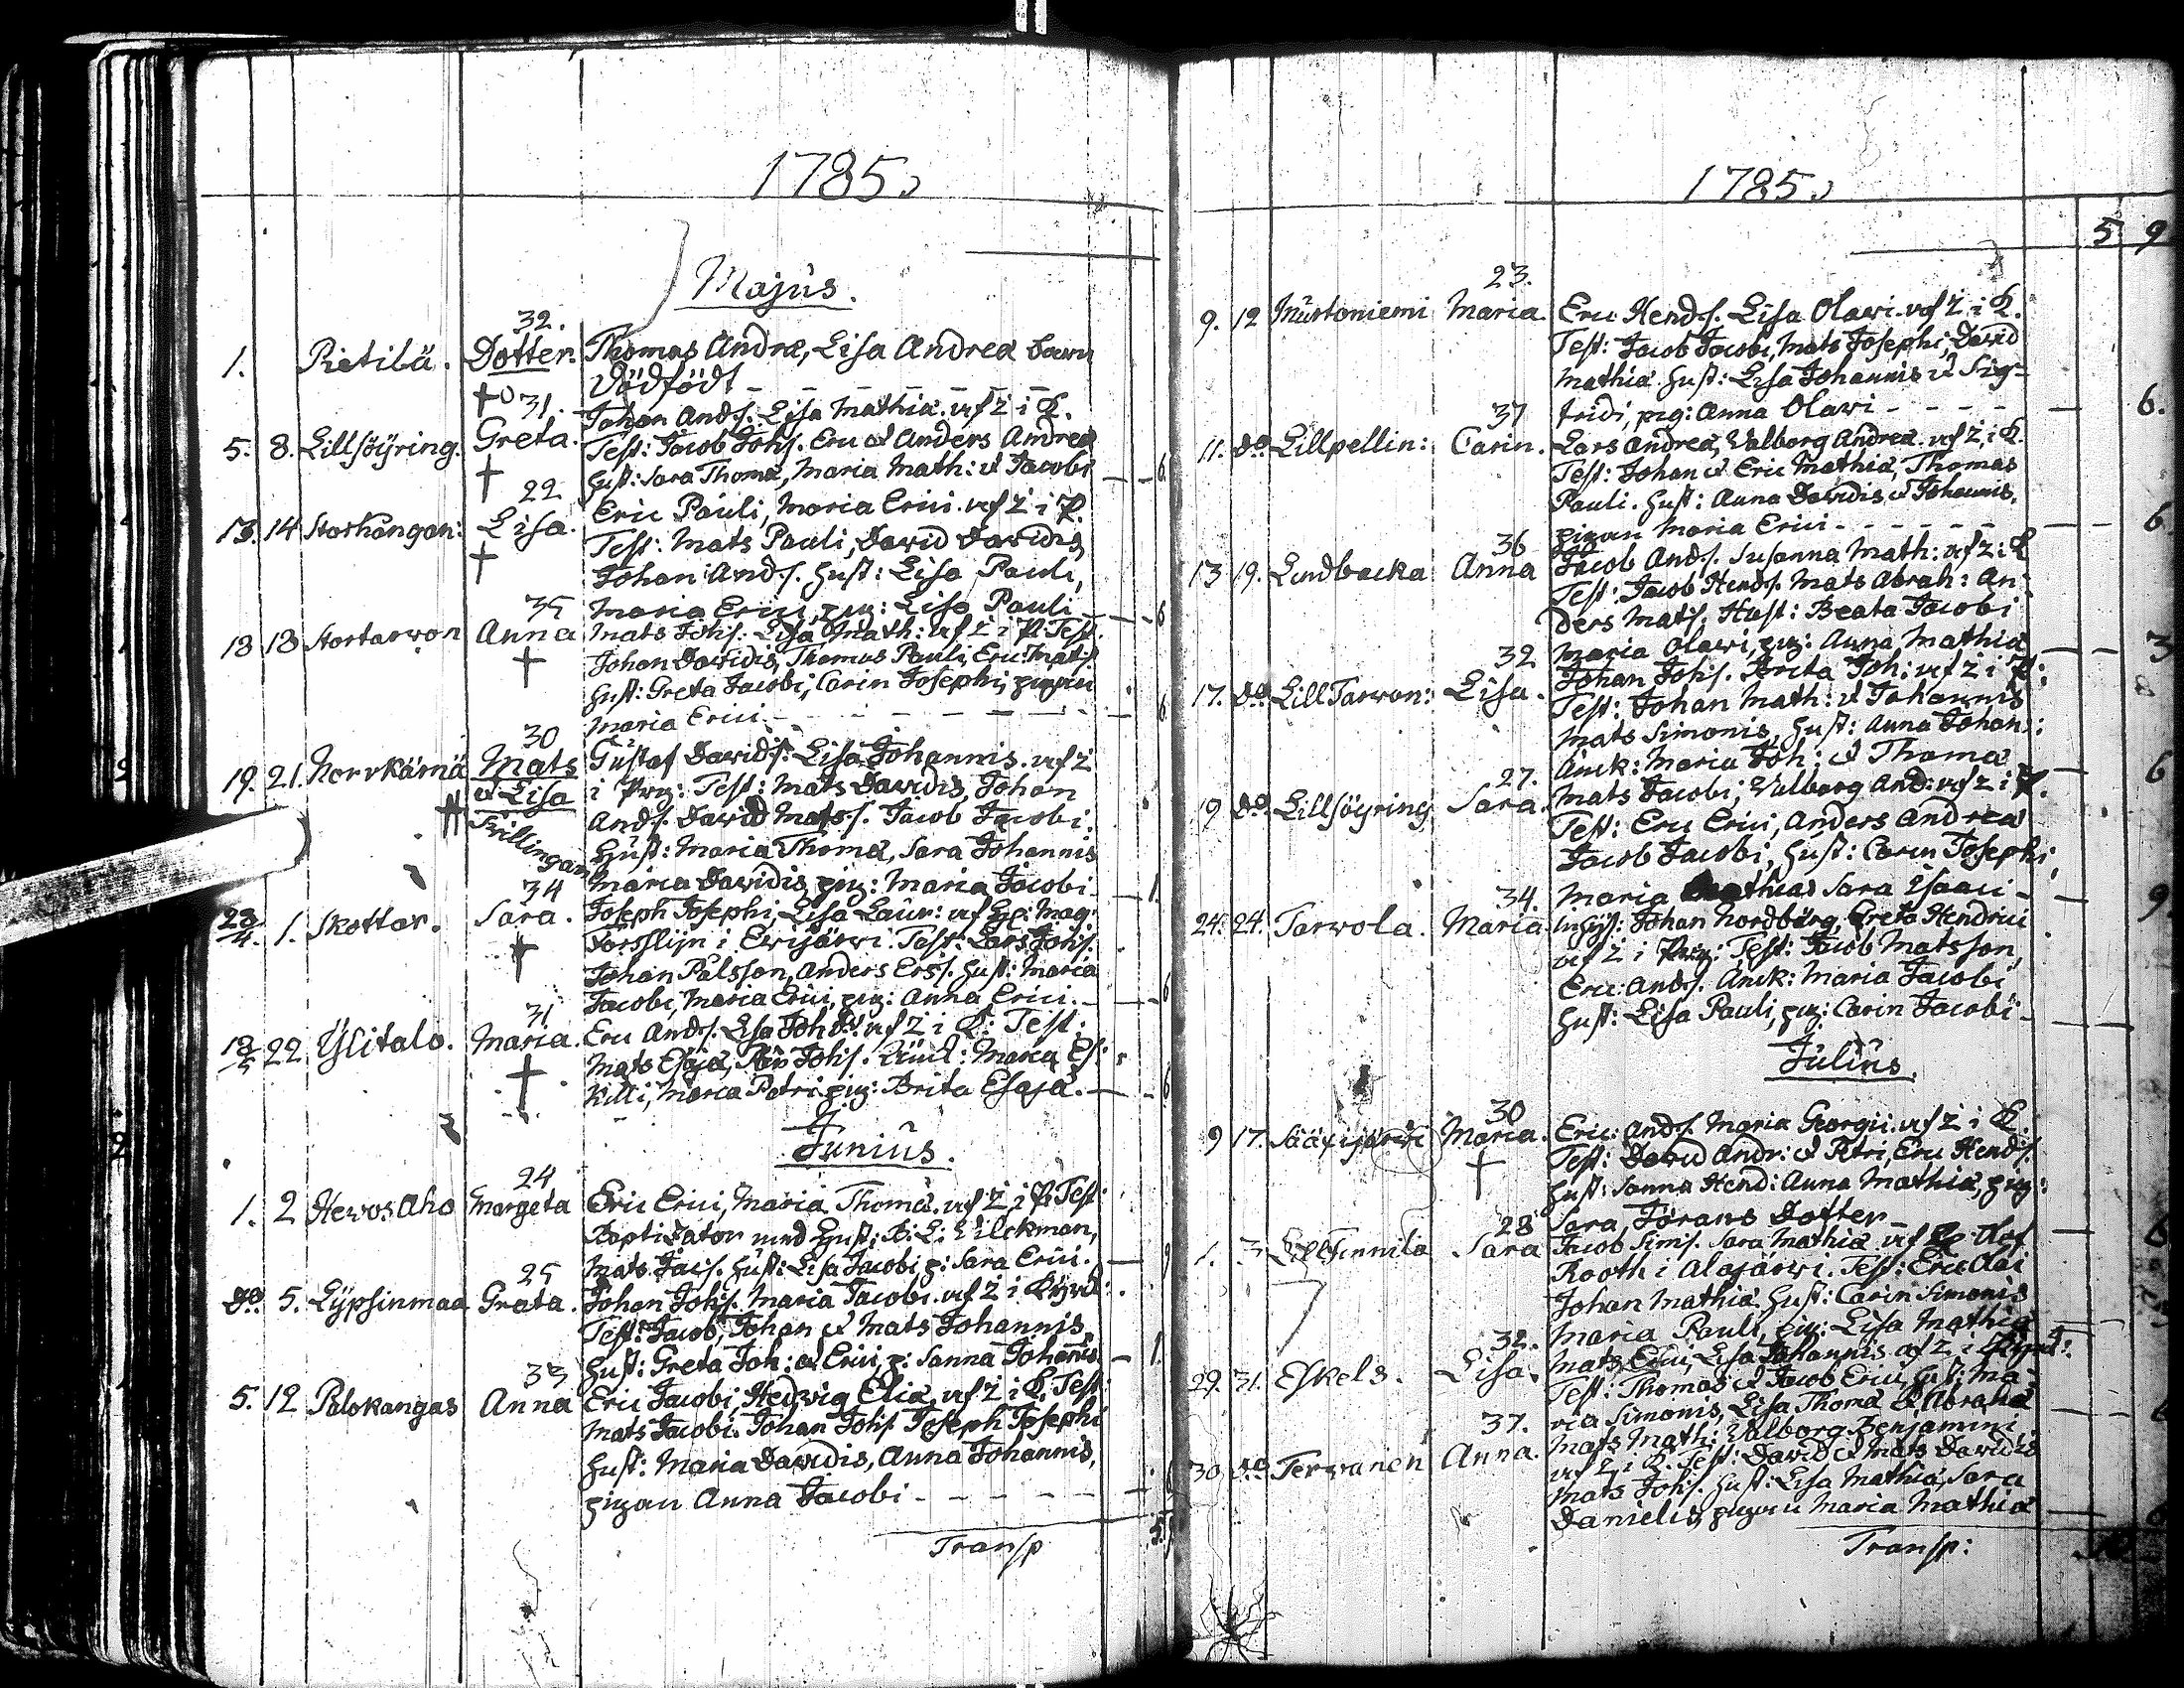 1785
Majus.
32.
1. Pietilä. Dotter. Thomas Andræ, Lisa Andreæ barn
Dödfödt
31.
Johan Ands. Lisa Mathiæ. af Z i K.
5. 8. Lillsöÿring. Greta. Test: Jacob Johs. Eric et Anders Andreæ
hust: Sara Thomæ, Maria Math: et Jacobi 6
22
Eric Pauli, Maria Erici. af Z i P.
13. 14 Storkangan: Lisa. Test: Mats Pauli, David Davidis
Johan Ands. hust: Lisa Pauli,
35
Maria Erici, pig: Lisa Pauli 6
13 13 Stortarvon Anna Mats Johs. Lisa Math: af Z i P. Test.
Johan Davidis, Thomas Pauli, Eric Mats.
hust: Greta Jacobi, Carin Josephi, pigan
Maria Erici 6
30
19. 21. Norrkärnä Mats Gustaf Davids: Lisa Johannis. af Z
et Lisa i Prg: Test: Mats Davidis, Johan
Trillingar Ands. David Mats s. Jacob Jacobi.
hust: Maria Thomæ, Sara Johannis
34
Maria Davidis, pig: Maria Jacobi 1
23/4. 1. Skottar. Sara. Joseph Josephi, Lisa Laur: af Mag:
Forsslijn i Evijärvi. Test: Lars Johs.
Johan Pålsson, Anders Erss. hust: Maria
Jacobi, Maria Erici, pig: Anna Erici. 6
31
22 Ylitalo. Maria. Eric Ands. Lisa Joh af Z i K: Test:
Mats Esajæ, Johs. Maria Es:
killi, Maria Petri pig: Brita Esajæ. 6
Junius.
24
1. 2 Hevos Aho Margeta Eric Erici, Maria Thomæ. af Z i P. Test:
Baptizator med hust:
Mats Jacs. hust: Lisa Jacobi p: Sara Erici.
25
do 5. Lÿpsinmaa Greta. Johan Johs. Maria Jacobi. af Z i Kyrd:
Test: Jacob, Johan et Mats Johannis
33
hust: Greta Joh: et Erici, p: Sanna Johannis. 1
5. 12 Palokangas Anna Eric Jacobi, Hedvig Eliæ. af Z i K. Test:
Mats Jacobi. Johan Johs Joseph Josephi
hust: Maria Davidis, Anna Johannis,
pigan Anna Jacobi
Transp
1785
5 9
23.
9. 12 Murtoniemi Maria. Eric Hends. Lisa Olavi. af Z i K.
Test: Jacob Jacobi, Mats Josephi, David
Mathiæ. hust: Lisa Johannis et Sig-
37
fridi, pig: Anna Olavi 6.
11. do Lillpellin: Carin. Lars Andreæ, Valborg Andreæ. af Z i K.
Test: Johan et Eric Mathiæ, Thomas
Pauli. hust: Anna Davidis et Johannis.
pigan Maria Erici 6
36
13 19. Lindbacka Anna Jacob Ands. Susanna Math: af Z i K
Test: Jacob Hends. Mats Abrah: An-
ders Mats. Hust: Beata Jacobi
32
Maria Olavi, pig: Anna Mathiæ 3
17. do Lill Tarvon: Lisa. Johan Johs. Brita Joh: af Z i P:
Test: Johan Math: et Johannis
Mats Simonis, hust: Anna Johan:
Änck: Maria Joh: et Thomæ 6
27.
19 do Lillsöÿring Sara. Mats Jacobi, Valborg And: af Z i P.
Test: Eric Erici, Anders Andreæ
Jacob Jacobi, hust: Carin Josephi,
34.
Maria Mathiæ Sara Isaaci 9
24. 24. Tarvola. Maria. Johan Nordberg, Greta Hendrici
af Z i Prg: Test: Jacob Matsson,
Eric Ands. Änck: Maria Jacobi
hust: Lisa Pauli, pig: Carin Jacobi
Julius.
30
9 17. Sääxijärvi Maria. Eric: Ands. Maria Georgii. af Z i K.
Test: David Andr: et Petri, Eric Hends.
hust: Sanna Hend: Anna Mathiæ, pig:
28
Sara Jörans Dotter 6
1. 3 Sara Jacob Sims. Sara Mathiæ af Olof
Rooth i Alajärvi. Test: Eric
Johan Mathiæ hust: Carin Simonis
32.
Maria Pauli, pig: Lisa Mathiæ
29. 31. Eskels. Lisa. Mats Erici, Lisa Johannis af Z i
Test: Thomas et Jacob Erici, hust: Ma-
37.
ria Simonis, Lisa Thomæ et Abrahæ
30 do Tervanen Anna. Mats Math: Valborg Benjamini
af Z i K. Test: David et Mats Davidis
Mats Johs. hust: Lisa Mathiæ, Sara
Danielis, pigan Maria Mathiæ
Transp: